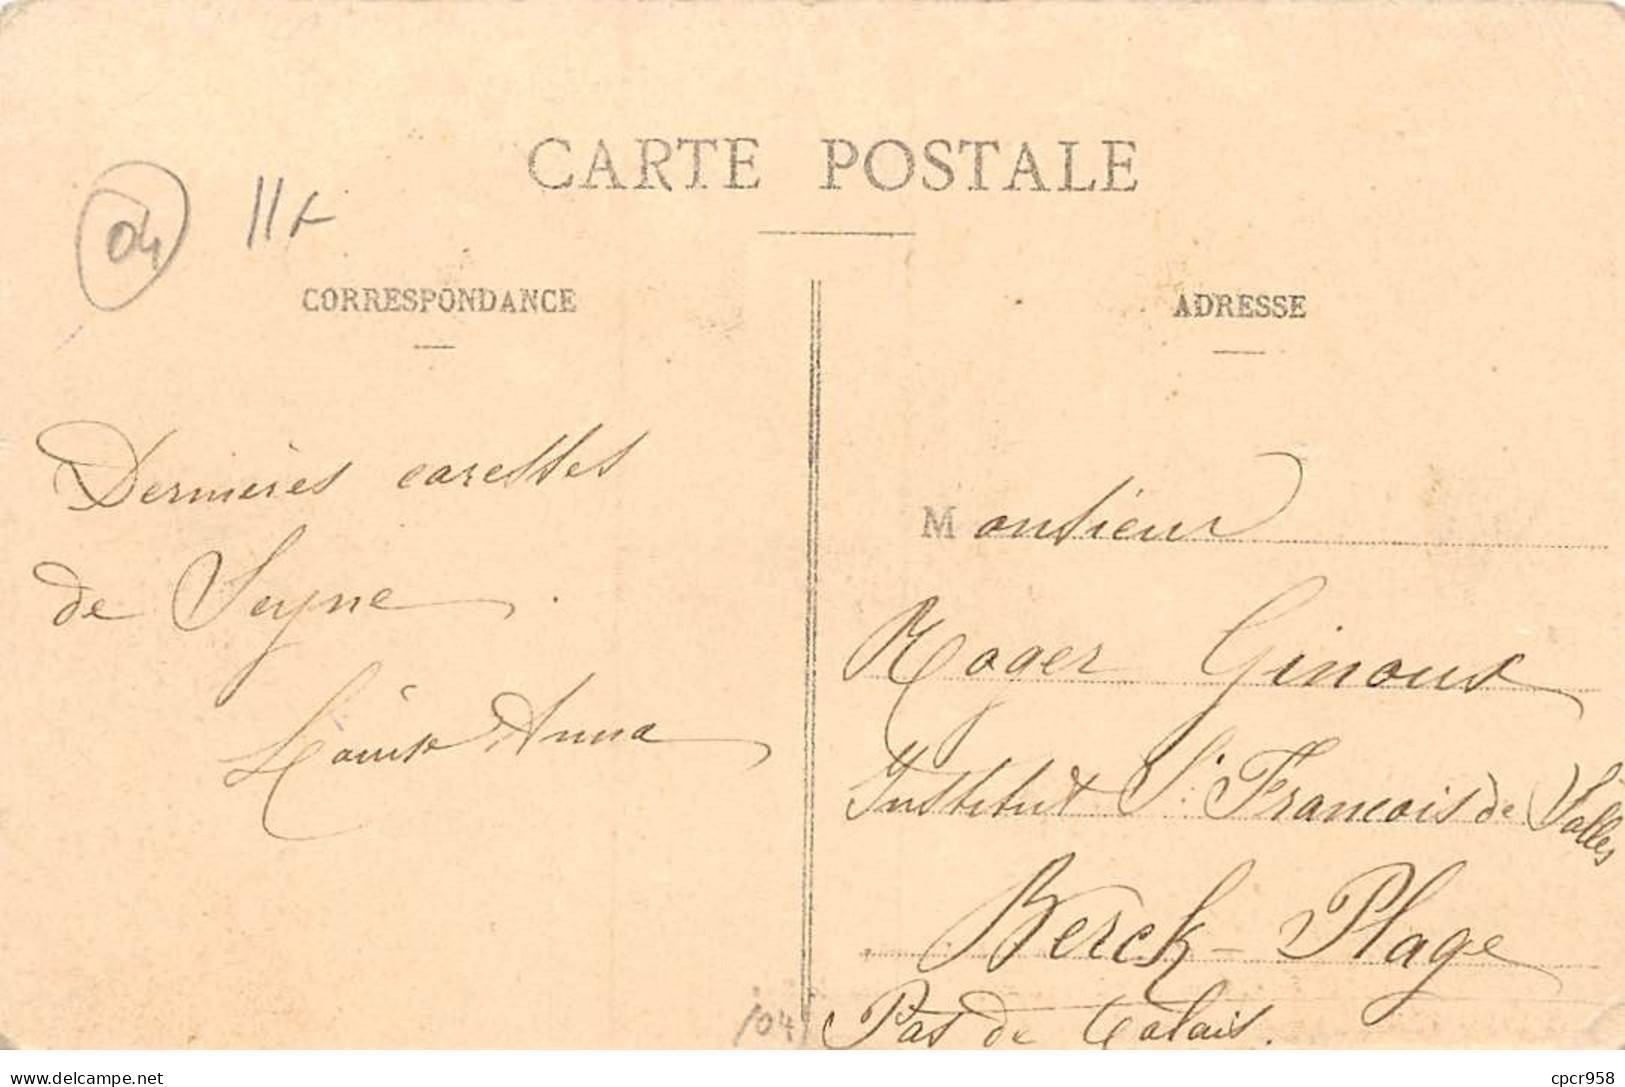 CARTE POSTALE
04
CORRESPONDANCE
ADRESSE
Dernières caresses
de Seyne.
Louise Anna
Monsieur
Roger Ginoux
Institut St Francois de Salles
Berck-Plage
Pas de Calais.
104
www.delcampe.net
cpcr958